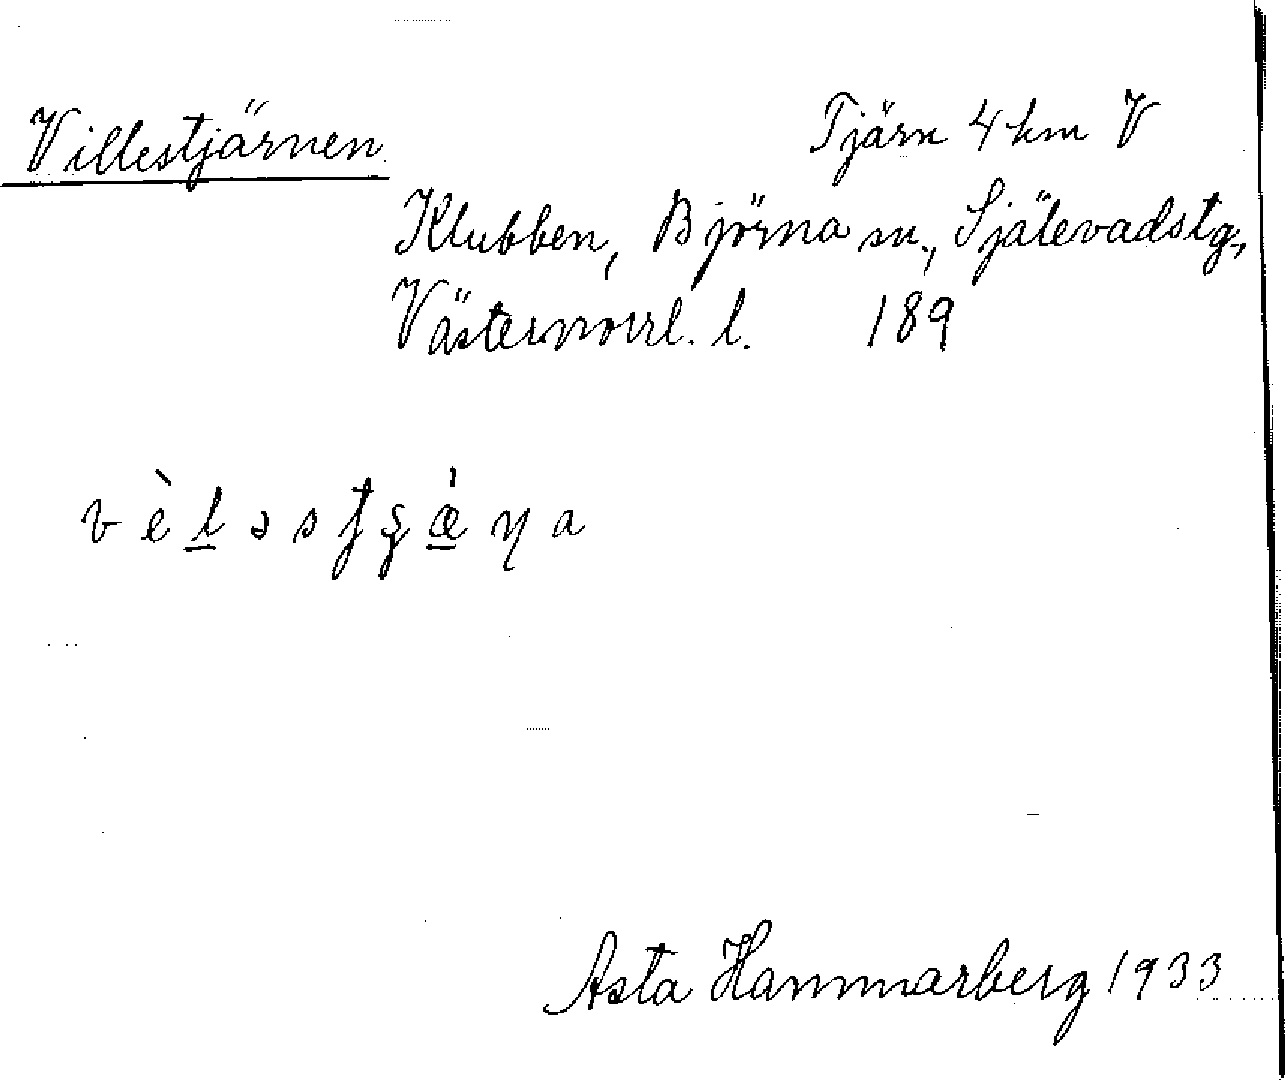 Villestjärnen Tjärn 4 km V
Klubben, Björna sn., Själevadstg.,
Västernorrl. l. 189
v è l̲ ə s ʈ ʂ æ̲̀ ɳ a
Asta Hammarberg 1933